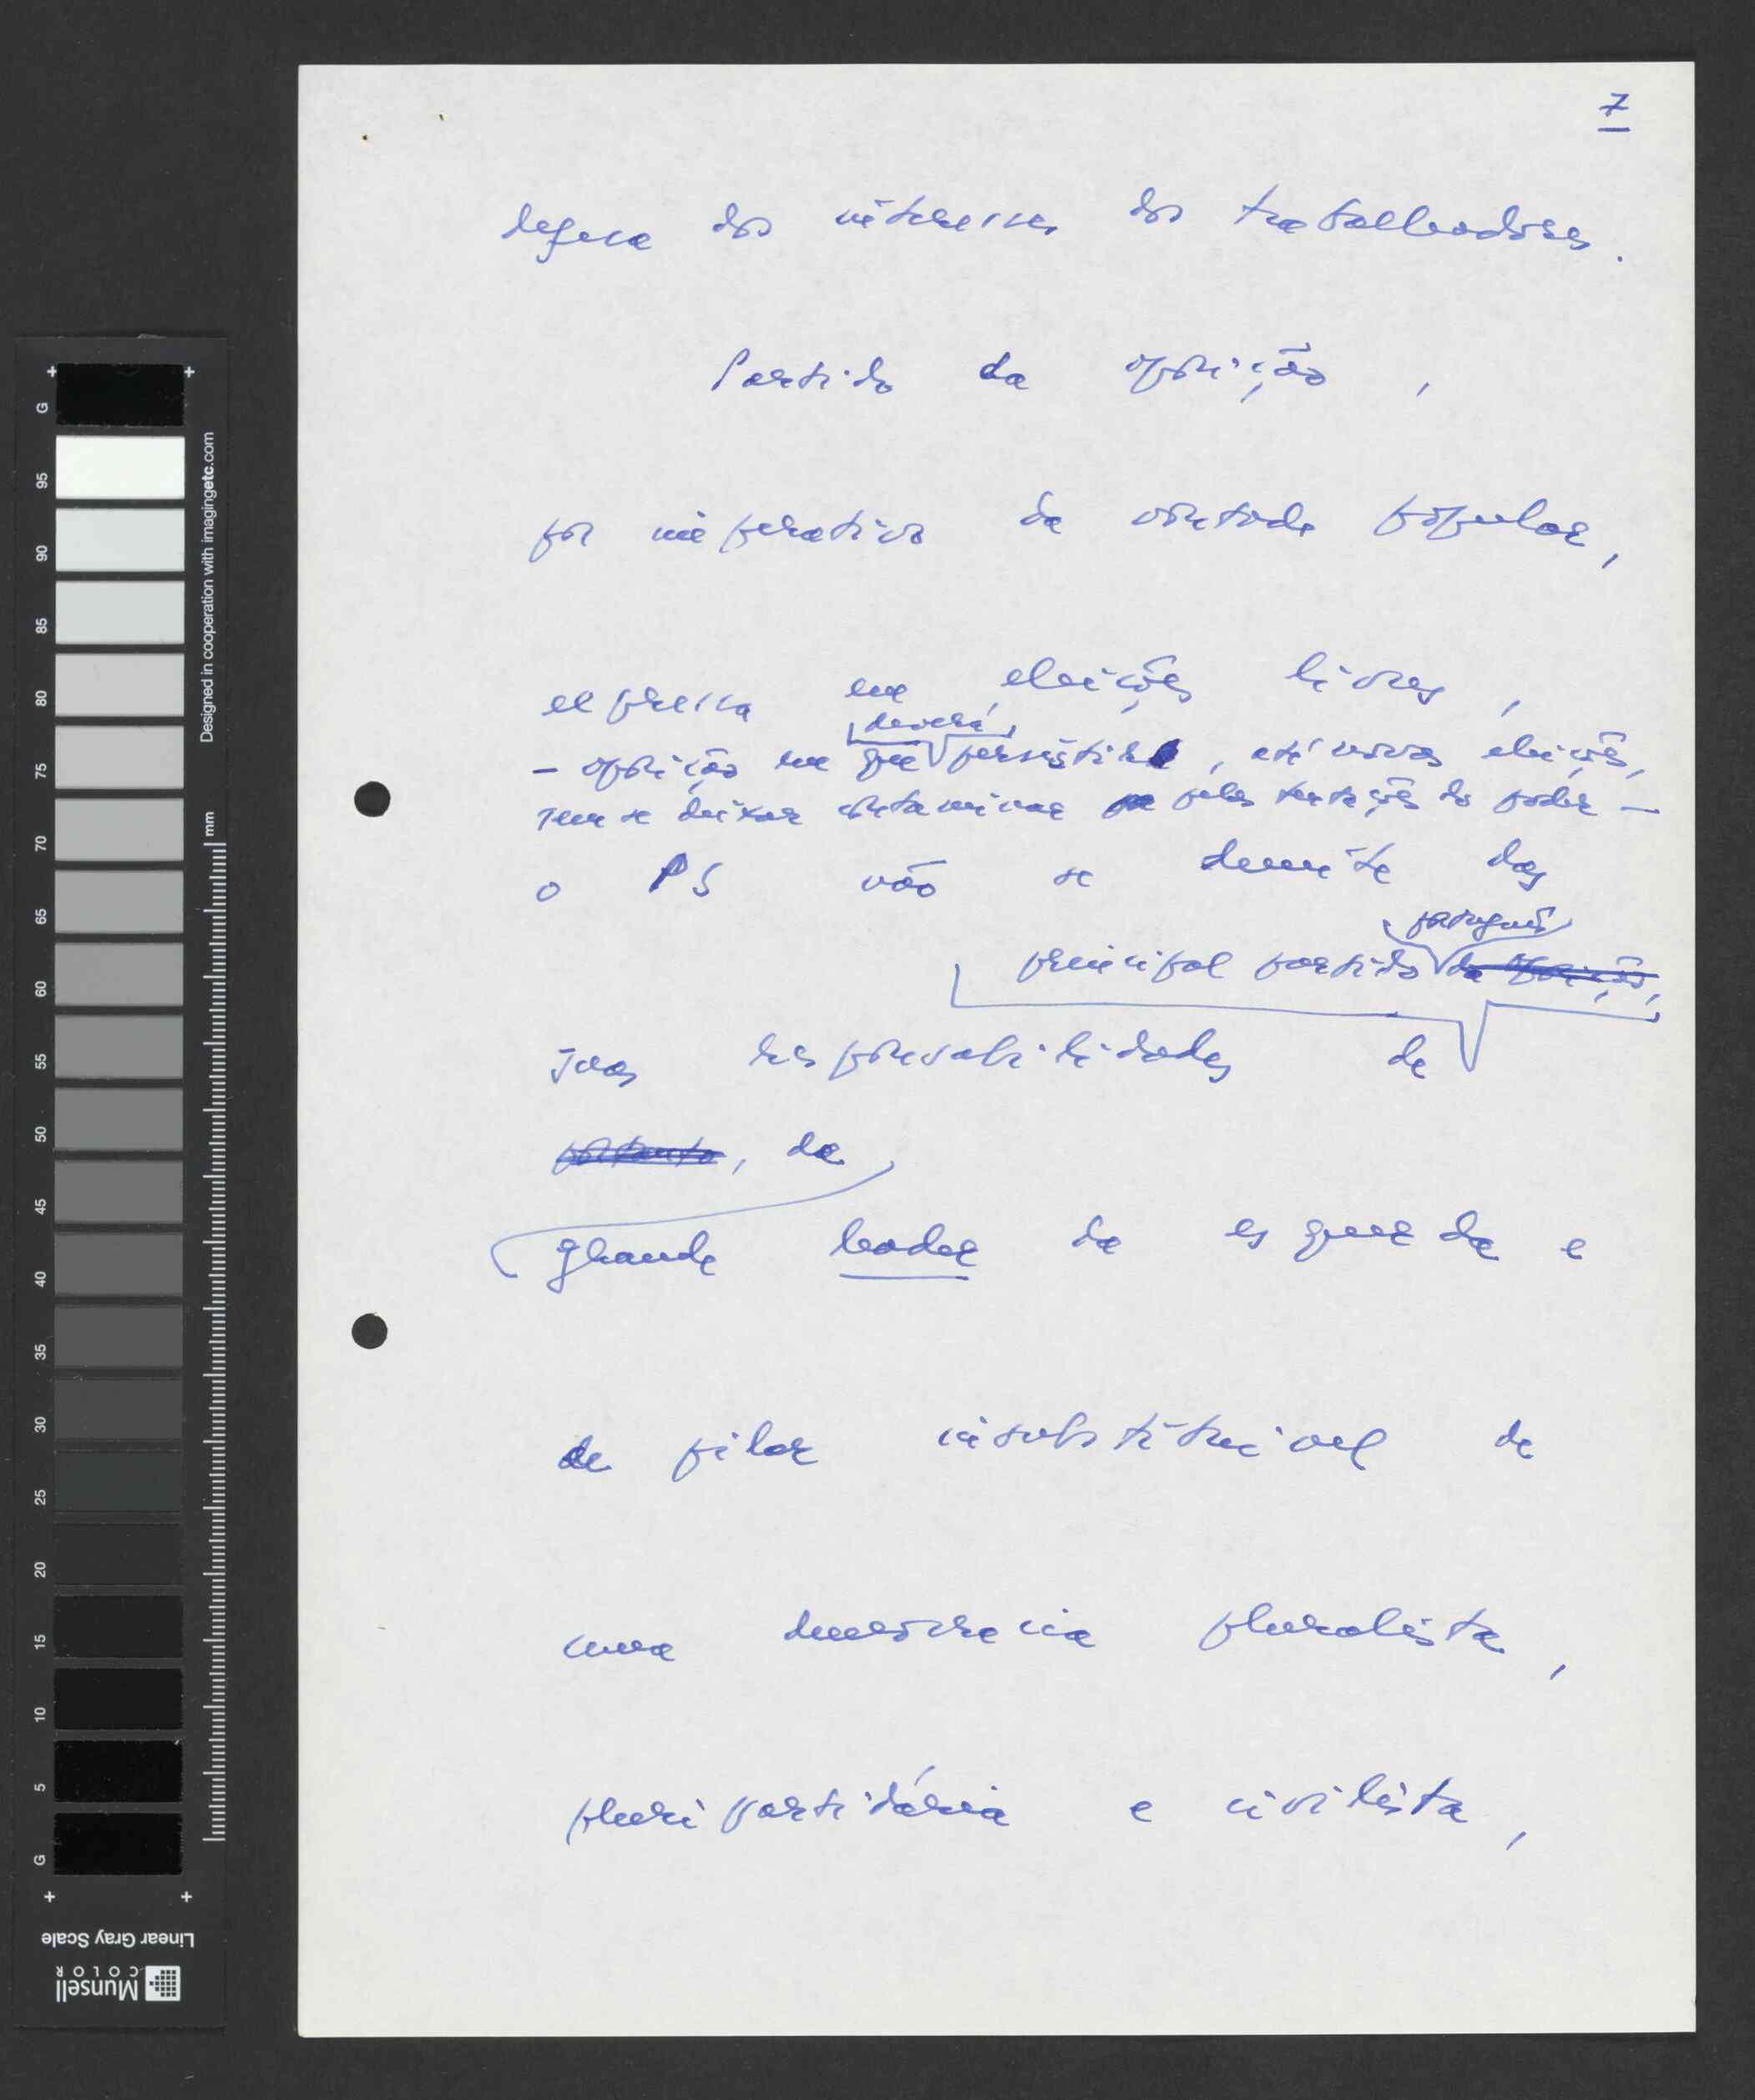 7
defesa dos interesses dos trabalhadores.
Partido da oposição,
por imperativo da vontade popular,
expressa em eleições livres,
deverá
- oposição em que persistir, até novas eleições,
sem se deixar contaminar pelas tentações do poder -
o PS não se demite das
português
principal partido da oposição,
suas responsabilidades de
portanto, de
grande leader da esquerda e
de pilar insubstituível de
uma democracia pluralista,
pluripartidária e civilista,
G
95
90
85
80
75
70
65
60
55
50
45
40
35
30
25
20
15
10
5
G
Designed in cooperation with imagingetc.com
mm
Linear Gray Scale
Munsell
COLOR